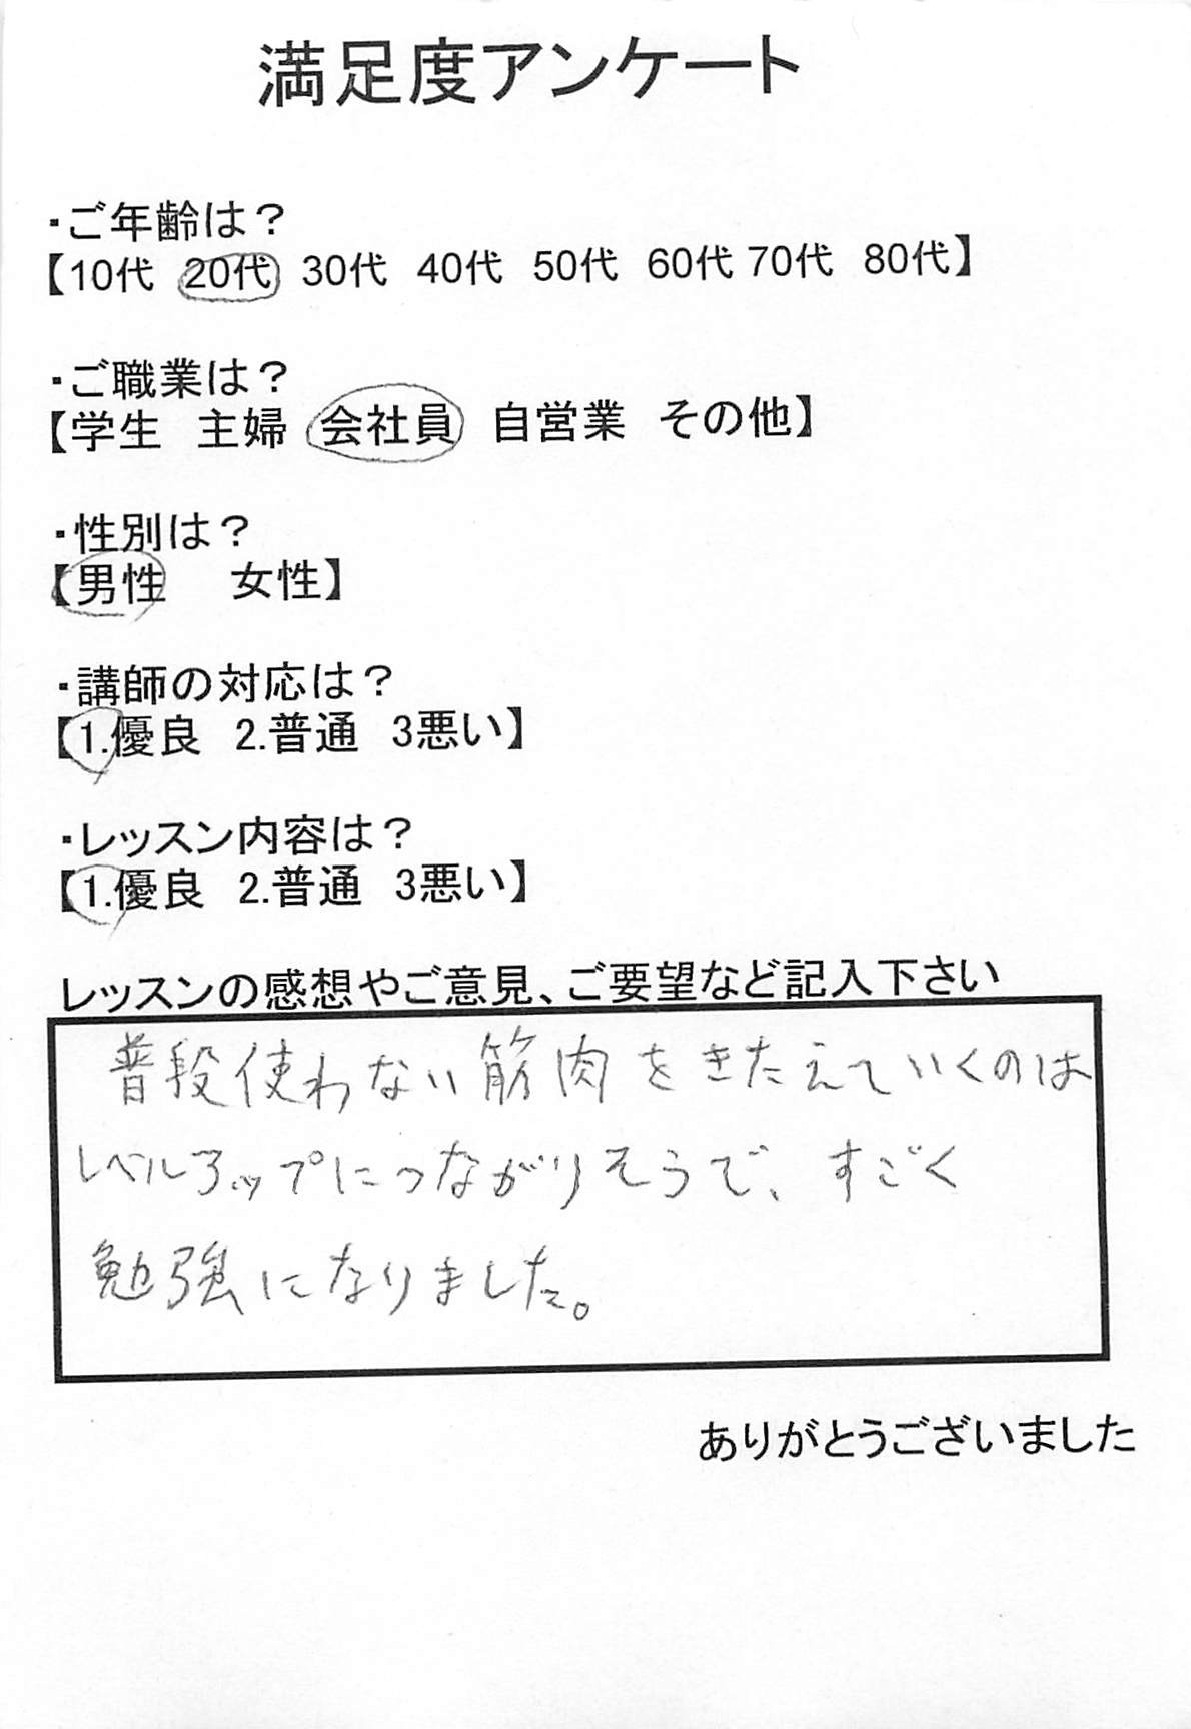 満足度アンケート
・ご年齢は？
【10代 20代 30代 40代 50代 60代 70代 80代】
・ご職業は？
【学生 主婦 会社員 自営業 その他】
・性別は？
【男性 女性】
・講師の対応は？
【1.優良 2.普通 3悪い】
・レッスン内容は？
【1.優良 2.普通 3悪い】
レッスンの感想やご意見、ご要望など記入下さい
普段使わない筋肉をきたえていくのは
レベルアップにつながりそうで、すごく
勉強になりました。
ありがとうございました